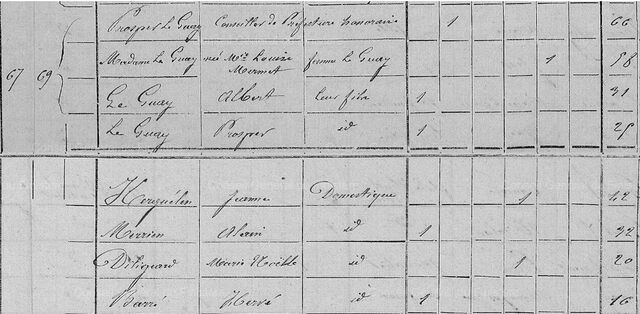 Prosper Le Guay Conseiller de Préfecture honoraire 1 66
67 69 Madame Le Guay née Mie Louise Mermet femme Le Guay 1 58
Le Guay Albert leur fils 1 31
Le Guay Prosper id 1 25
Jeanne Domestique 1 42
Merrien Alain id 1 32
Marie Noëlle id 1 20
Barré Hervé id 1 16